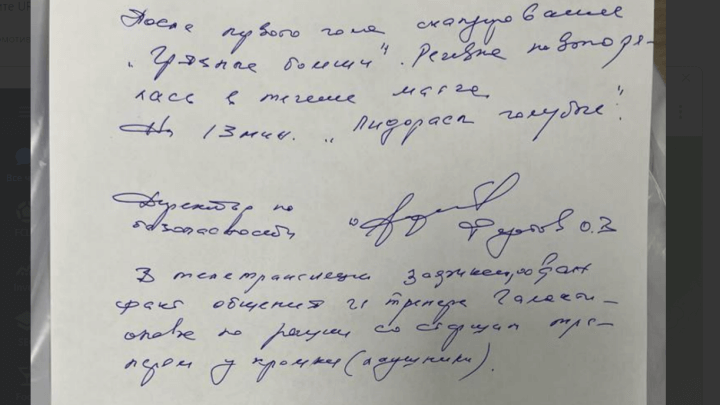 После первого гола скандирование
"Грязные бомжи". Речевка повторя-
лась в течение матча.
На 13 мин. "Пидорасы голубые".
Директор по
безопасности О.З.
В телетрансляции зафиксирован
факт общения гл тренера Галакти-
онова по рации со старшим тре-
нером у кромки (наушники).